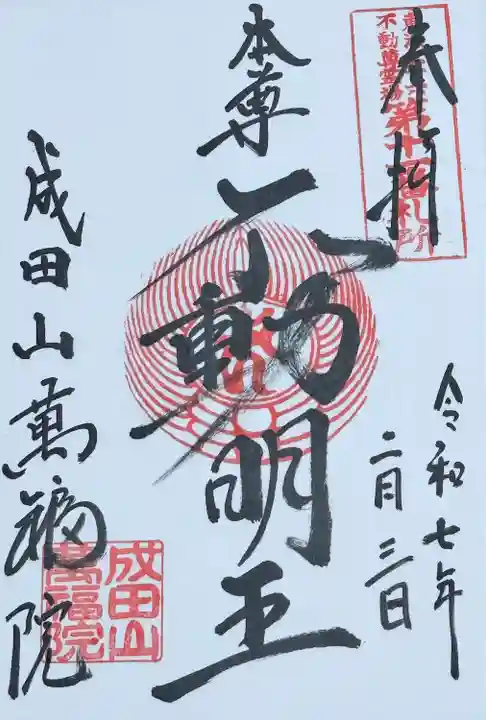 奉拝
不動尊霊場
第十一番札所
令和七年
二月三日
本尊
不動明王
成田山萬福院
成田山
萬福院